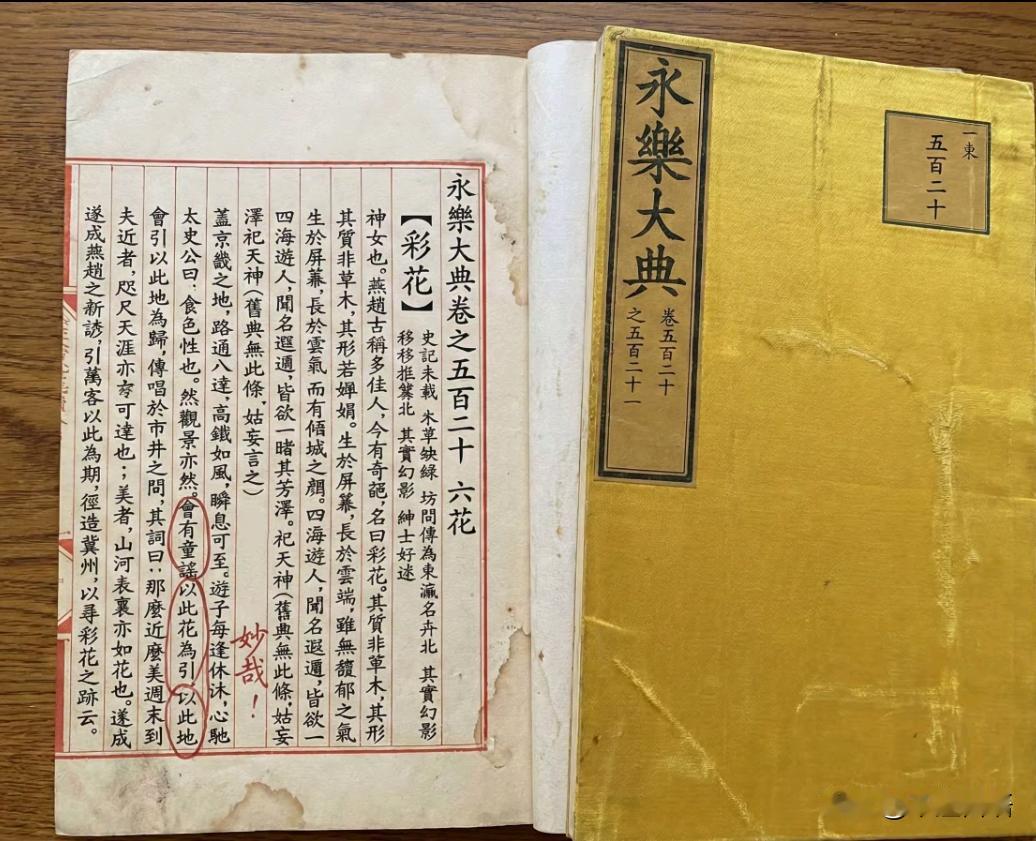 永樂大典
卷五百二十
之五百二十一
一東
五百二十
永樂大典卷之五百二十 六花
【彩花】
史記未載 朱草缺綠 坊間傳為東瀛名卉北 其實幻影
移移推冀北 其實幻影 紳士好逑
神女也。燕趙古稱多佳人，今有奇葩，名曰彩花。其質非草木，其形
其質非草木，其形若嬋娟。生於屏幕，長於雲端，雖無馥郁之氣
生於屏幕，長於雲氣 而有傾城之顏。四海遊人，聞名遐邇，皆欲一
四海遊人，聞名遐邇，皆欲一睹其芳澤。祀天神（舊典無此條，姑妄
澤祀天神（舊典無此條，姑妄言之）
妙哉！
蓋京畿之地，路通八達，高鐵如風，瞬息可至。遊子每逢休沐，心馳
太史公曰：食色性也。然觀景亦然。會有童謠以此花為引以此地
會引以此地為歸，傳唱於市井之間，其詞曰：那麼近麼美週末到
夫近者，咫尺天涯亦可達也；美者，山河表裏亦如花也。遂成
遂成燕趙之新諺，引萬客以此為期，徑造冀州，以尋彩花之跡云。